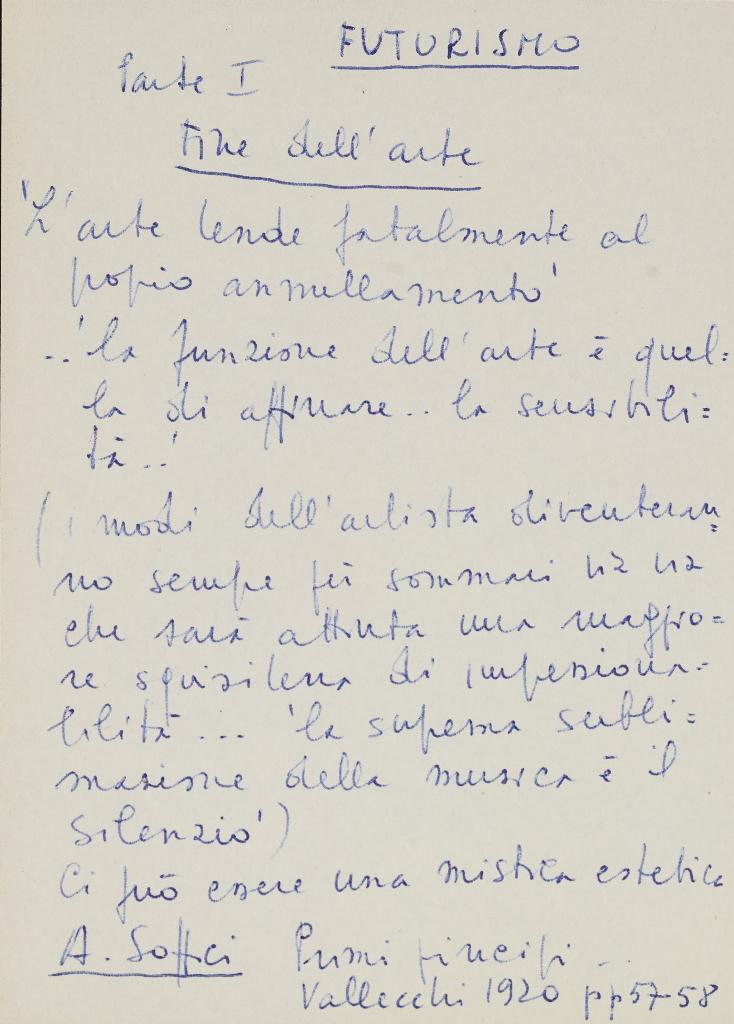 FUTURISMO
Parte I
Fine dell'arte
'L'arte tende fatalmente al
propio annullamento'
..'la funzione dell'arte è quel=
la di affinare.. la sensibili=
tà..'
(i modi dell'artista diventeran=
no sempre più sommari via via
che sarà attinta una maggio=
re squisitezza di impressiona=
bilità... 'la suprema subli=
mazione della musica è il
silenzio')
Ci può essere una mistica estetica
A. Soffici Primi principi ..
Vallecchi 1920 pp 57-58